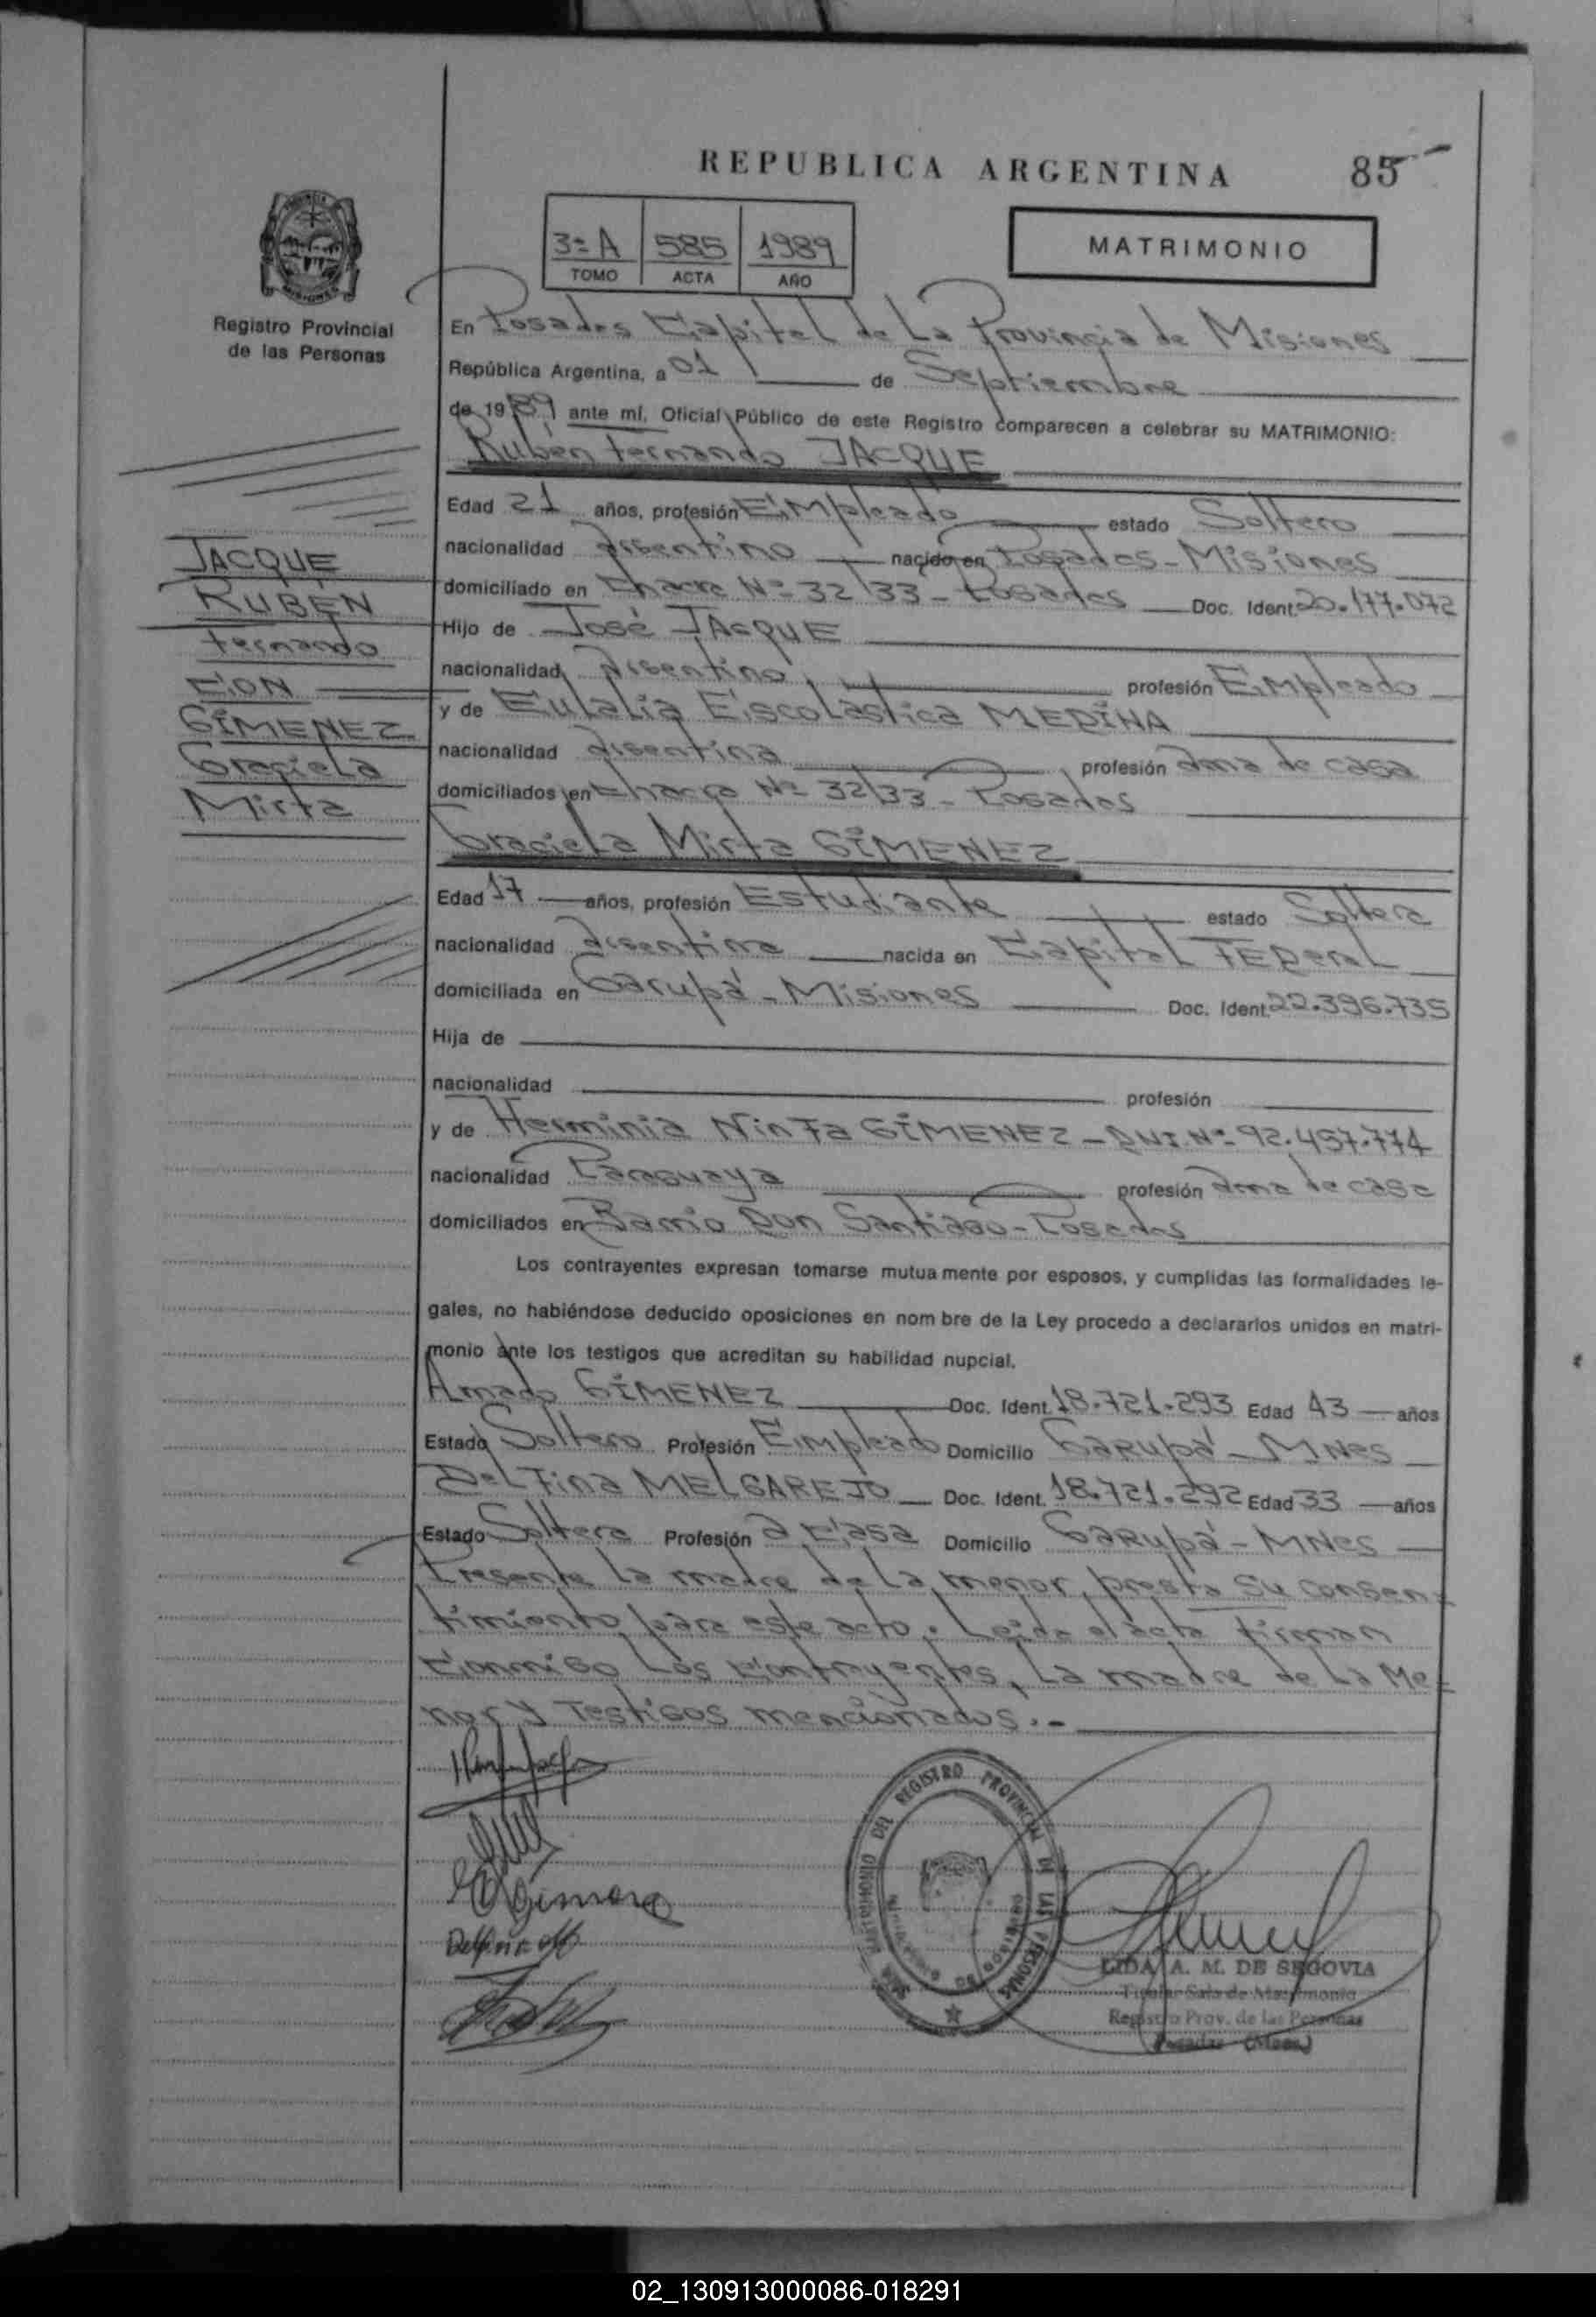 REPUBLICA ARGENTINA
85
3ª A 585 1989
TOMO ACTA AÑO
MATRIMONIO
Registro Provincial
de las Personas
En Posadas Capital de La Provincia de Misiones
República Argentina, a 01 de Septiembre
de 1989 ante mí, Oficial Público de este Registro comparecen a celebrar su MATRIMONIO:
Rubén Fernando JACQUE
Edad 21 años, profesión Empleado estado Soltero
nacionalidad Argentino nacido en Posadas - Misiones
domiciliado en Chacra Nº 32/33 - Posadas Doc. Ident. 20.177.072
Hijo de José JACQUE
nacionalidad Argentino profesión Empleado
y de Eulalia Escolástica MEDINA
nacionalidad Argentina profesión Ama de casa
domiciliados en Chacra Nº 32/33 - Posadas
Graciela Mirta GIMENEZ
Edad 17 años, profesión Estudiante estado Soltera
nacionalidad Argentina nacida en Capital FEDeral
domiciliada en Garupá - Misiones Doc. Ident. 22.396.735
Hija de
nacionalidad profesión
y de Herminia Ninfa GIMENEZ - DNI Nº 92.457.774
nacionalidad Paraguaya profesión Ama de casa
domiciliados en Barrio Don Santiago - Posadas
Los contrayentes expresan tomarse mutuamente por esposos, y cumplidas las formalidades le-
gales, no habiéndose deducido oposiciones en nombre de la Ley procedo a declararlos unidos en matri-
monio ante los testigos que acreditan su habilidad nupcial.
Amado GIMENEZ Doc. Ident. 18.721.293 Edad 43 años
Estado Soltero Profesión Empleado Domicilio GARUpá - MNes
DelFina MELGAREJO Doc. Ident. 18.721.292 Edad 33 años
Estado Soltera Profesión a Casa Domicilio GARUpá - MNes
Presente la madre de La menor, presta su consen-
timiento para este acto. Leida el acta Firman
Conmigo Los Contrayentes, La madre de La Me-
nor y Testigos mencionados.-
JACQUE
RUBÉN
Fernando
CON
GIMENEZ
Graciela
Mirta
SALA MATRIMONIO DEL REGISTRO PROVINCIAL DE LAS PERSONAS
LIDA A. M. DE SEGOVIA
Titular Sala de Matrimonio
Registro Prov. de las Personas
Posadas (Mnes.)
02_130913000086-018291